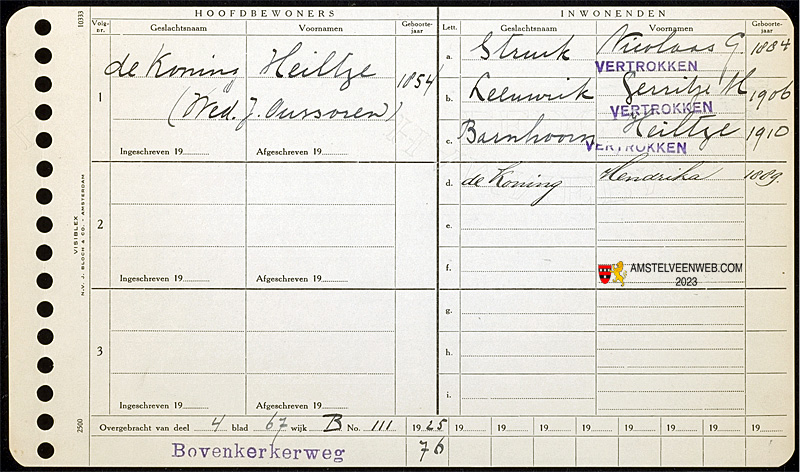 HOOFDBEWONERS
INWONENDEN
10333
Volg-nr.
Geslachtsnaam
Voornamen
Geboorte-jaar
Lett.
Geslachtsnaam
Voornamen
Geboorte-jaar
1
de Koning Heiltze 1854
(Wed. J. Oussoren)
Ingeschreven 19
Afgeschreven 19
a. Struik Nicolaas G. 1884
VERTROKKEN
b. Leeuwrik Gerritze M 1906
VERTROKKEN
c. Barnhoorn Heiltze 1910
VERTROKKEN
d. de Koning Hendrika 1889.
2
Ingeschreven 19
Afgeschreven 19
e.
f.
AMSTELVEENWEB.COM
2023
3
Ingeschreven 19
Afgeschreven 19
g.
h.
i.
VISIBLEX
N.V. J. BLOCH & CO. - AMSTERDAM
2500
Overgebracht van deel 4 blad 67 wijk B No. 111 1925 19 19 19 19 19 19 19 19
Bovenkerkerweg 76